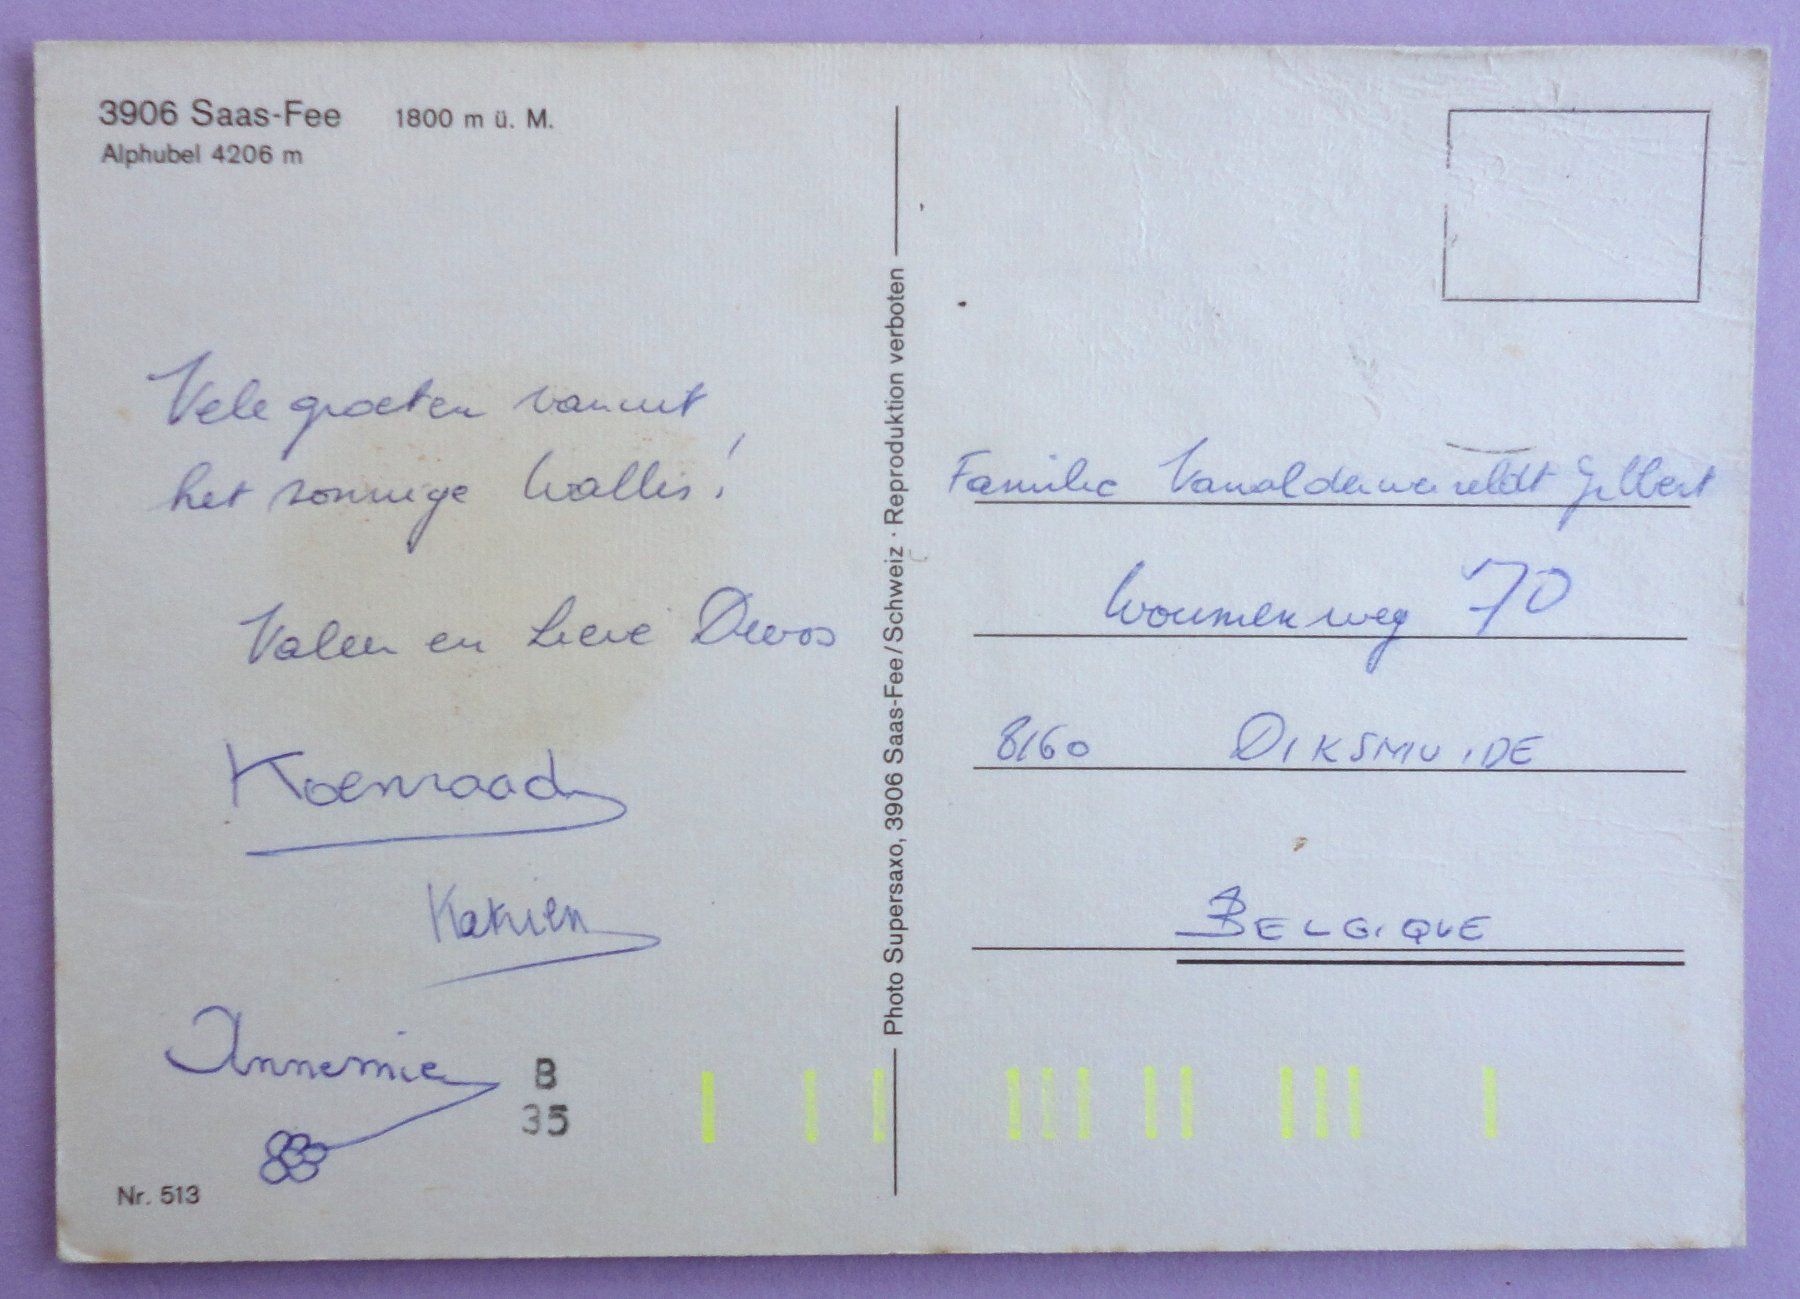 3906 Saas-Fee 1800 m ü. M.
Alphubel 4206 m
Vele groeten vanuit
het zonnige Wallis!
Valeer en Lieve Devos
Koenraad
Katrien
Annemie
B
35
Nr. 513
Photo Supersaxo, 3906 Saas-Fee/Schweiz · Reproduktion verboten
Familie Vanalderweireldt Gilbert
Woumenweg 70
8160 DIKSMUIDE
BELGIQUE